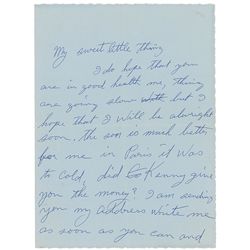 My sweet little thing
I do hope that you
are in good health me, thing
are going slow with but I
hope that I will be alright
soon. the son is much bettr
for me in Paris it was
to cold, did Kenny give
you the money? I am sending
you my address write me
as soon as you can and